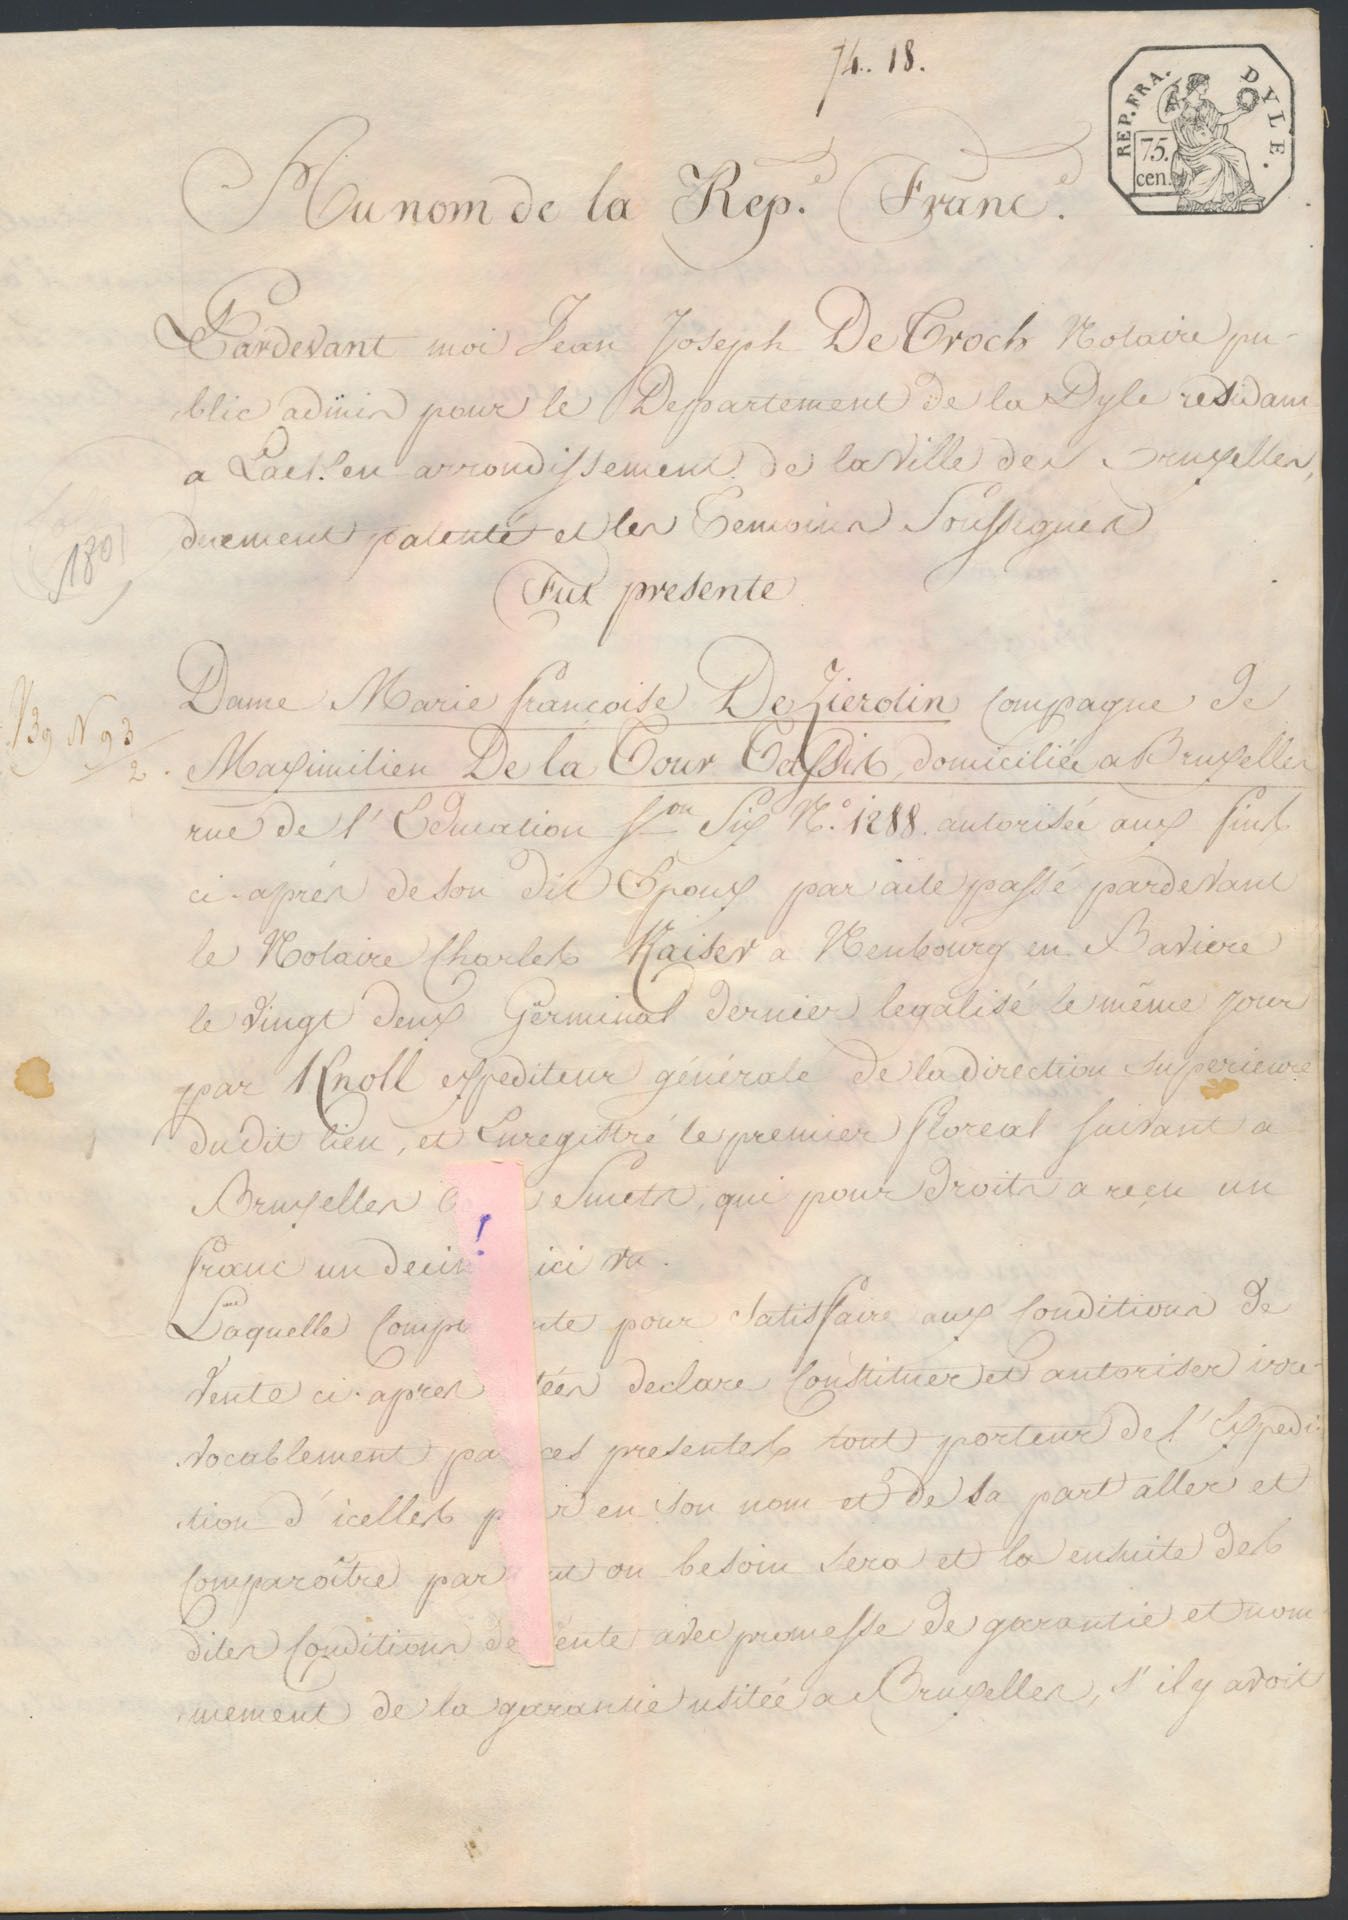 74.. 18.
REP. FRA. DYLE.
75. cen.
Au nom de la Rep.e Franc.e
Pardevant moi Jean Joseph De Croch Notaire pu-
blic admis pour le Departement de la Dyle residant
a Laeken arrondissement de la Ville de Bruxelles,
duement patenté et les Temoins Soussignés
1801
Fut presente
Dame Marie françoise De Zierotin Compagne de
V39 N 93
2
Maximilien De la Tour Tassis, domiciliée a Bruxelles
rue de l'Education S.on Six N.o 1288. autorisée aux fins
ci-aprés de son dit Epoux par acte passé pardevant
le Notaire Charles Kaiser a Neubourg en Baviere
le Vingt deux Germinal dernier legalisé le même jour
par Knoll expediteur générale de la direction superieure
du dit lieu, et Enregistré le premier floreal suivant a
Bruxelles Smets, qui pour droits a reçu un
franc un deci ici vu.
!
Laquelle Comp nte pour satisfaire aux Conditions de
Vente ci-apres tées declare Constituer et autoriser irre-
vocablement pa ces presentes tout porteur de l'Expedi-
tion d'icelles p r en son nom et de sa part aller et
Comparoître par ut ou besoin sera et la ensuite des
dites Conditions de ente avec promesse de garantie et nom-
mement de la garantie usitée a Bruxelles, s'il y avoit